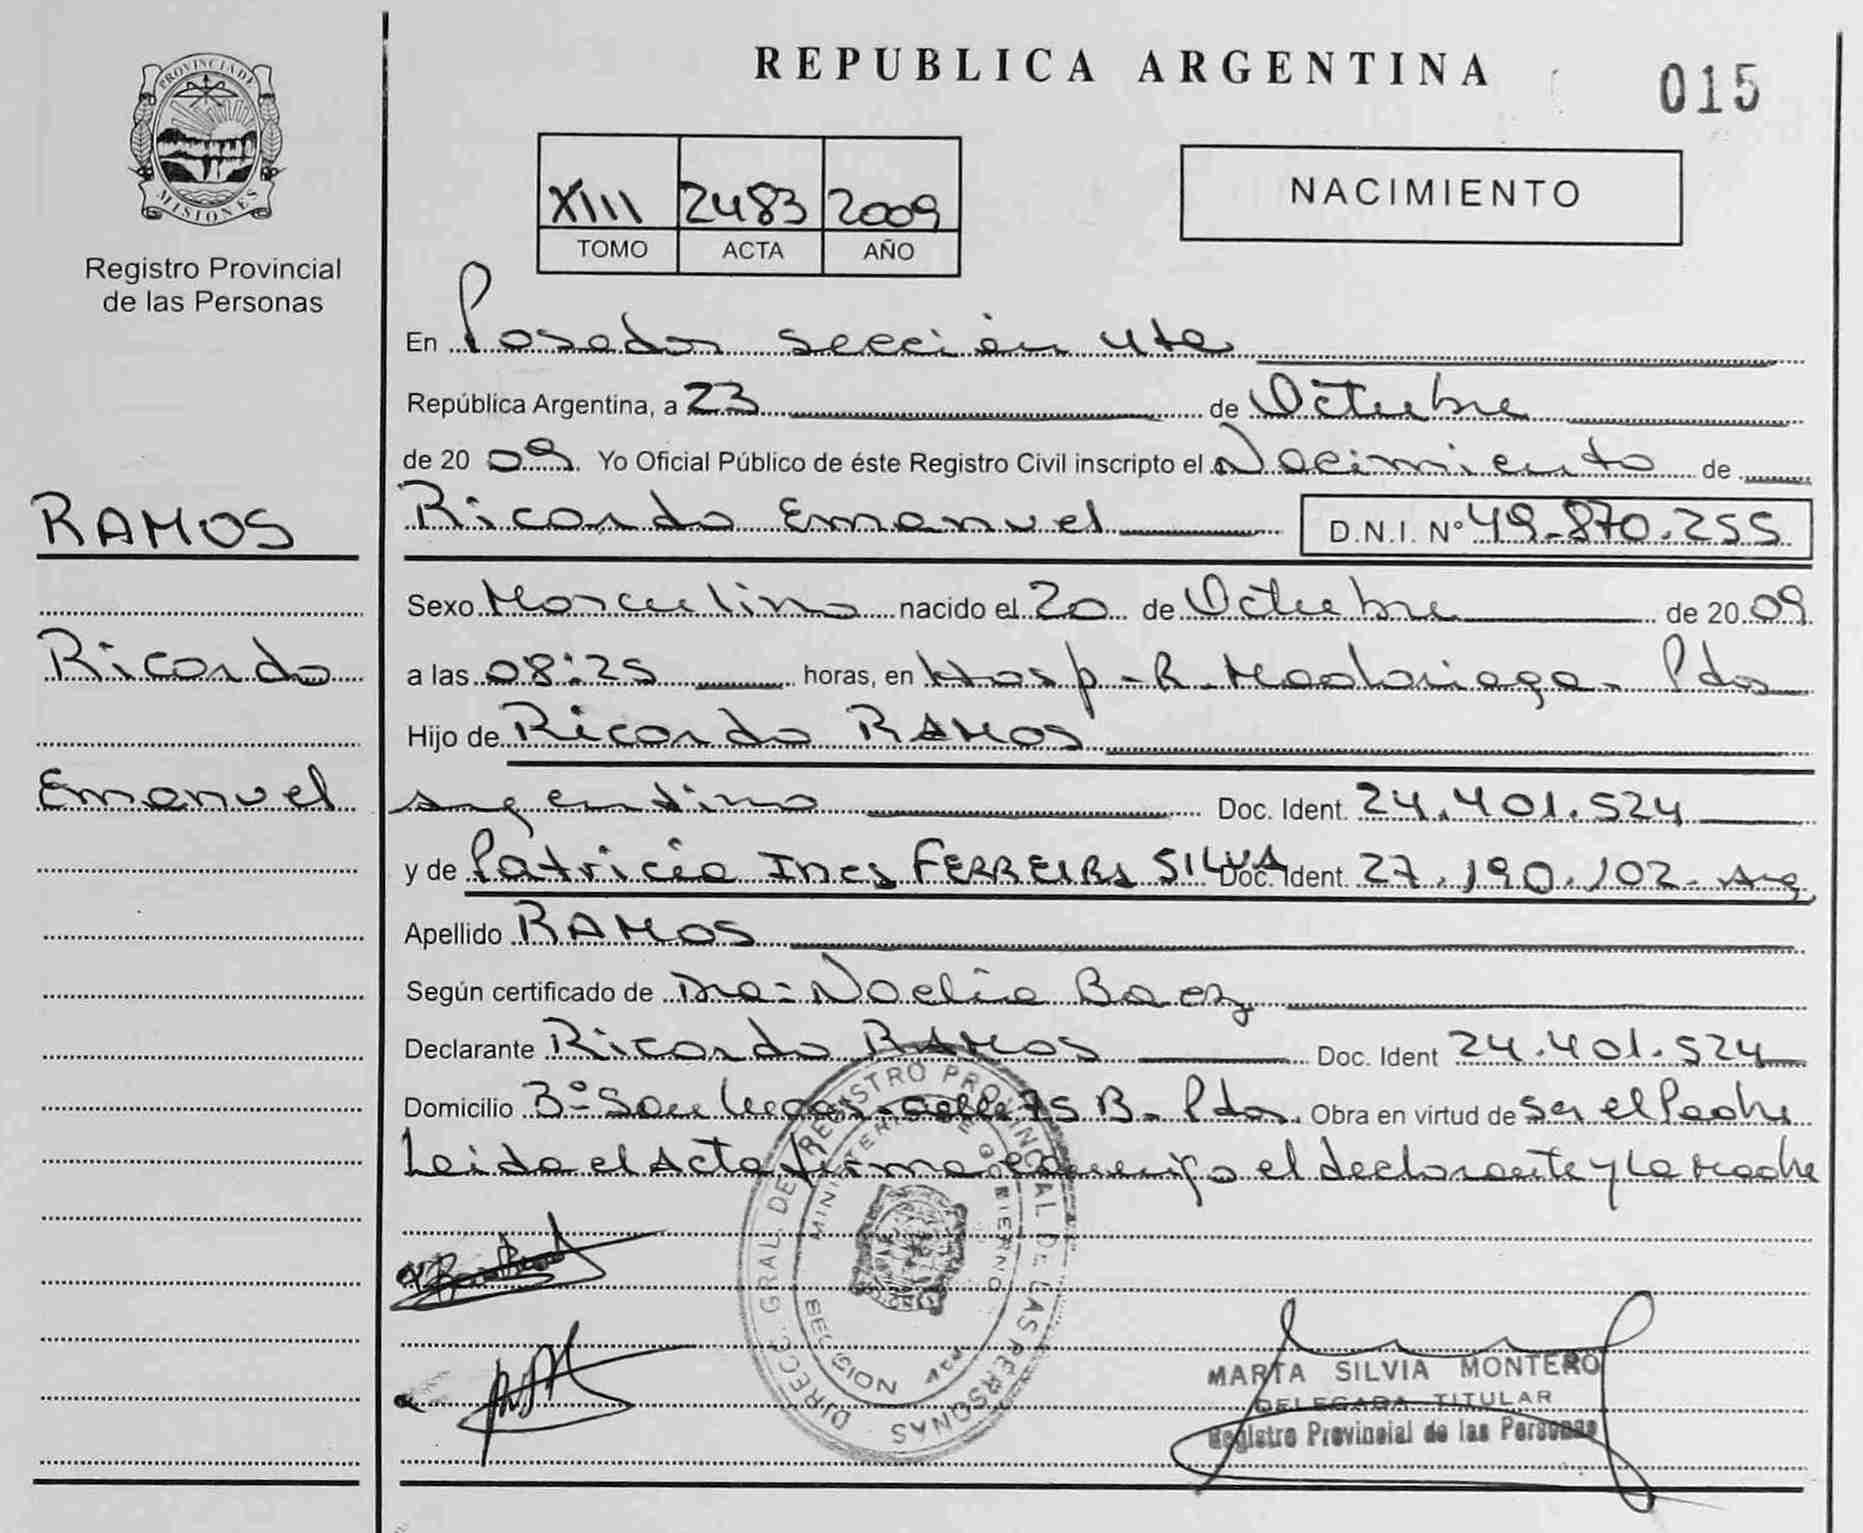 REPUBLICA ARGENTINA
015
PROVINCIA DE
MISIONES
Registro Provincial
de las Personas
XIII 2483 2009
TOMO ACTA AÑO
NACIMIENTO
En Posadas sección 4ta
República Argentina, a 23 de Octubre
de 20 09. Yo Oficial Público de éste Registro Civil inscripto el Nacimiento de
RAMOS
Ricardo
Emanuel
Ricardo Emanuel D.N.I. Nº 49.870.255
Sexo Masculino nacido el 20 de Octubre de 20 09
a las 08:25 horas, en Hosp. R. Madariaga. Pdas
Hijo de Ricardo RAMOS
argentino Doc. Ident. 24.401.524
y de Patricia Ines FERREIRA SILVA Doc. Ident. 27.190.102. Arg
Apellido RAMOS
Según certificado de Dra. Noelia Baez
Declarante Ricardo RAMOS Doc. Ident 24.401.524
Domicilio Bº San Lucas. calle 75 B. Pdas. Obra en virtud de ser el Padre
Leida el Acta firma conmigo el declarante y la madre
DIRECC. GRAL. DE REGISTRO PROVINCIAL DE LAS PERSONAS
MINISTERIO DE GOBIERNO
SECCION 4ta
MARTA SILVIA MONTERO
DELEGADA TITULAR
Registro Provincial de las Personas